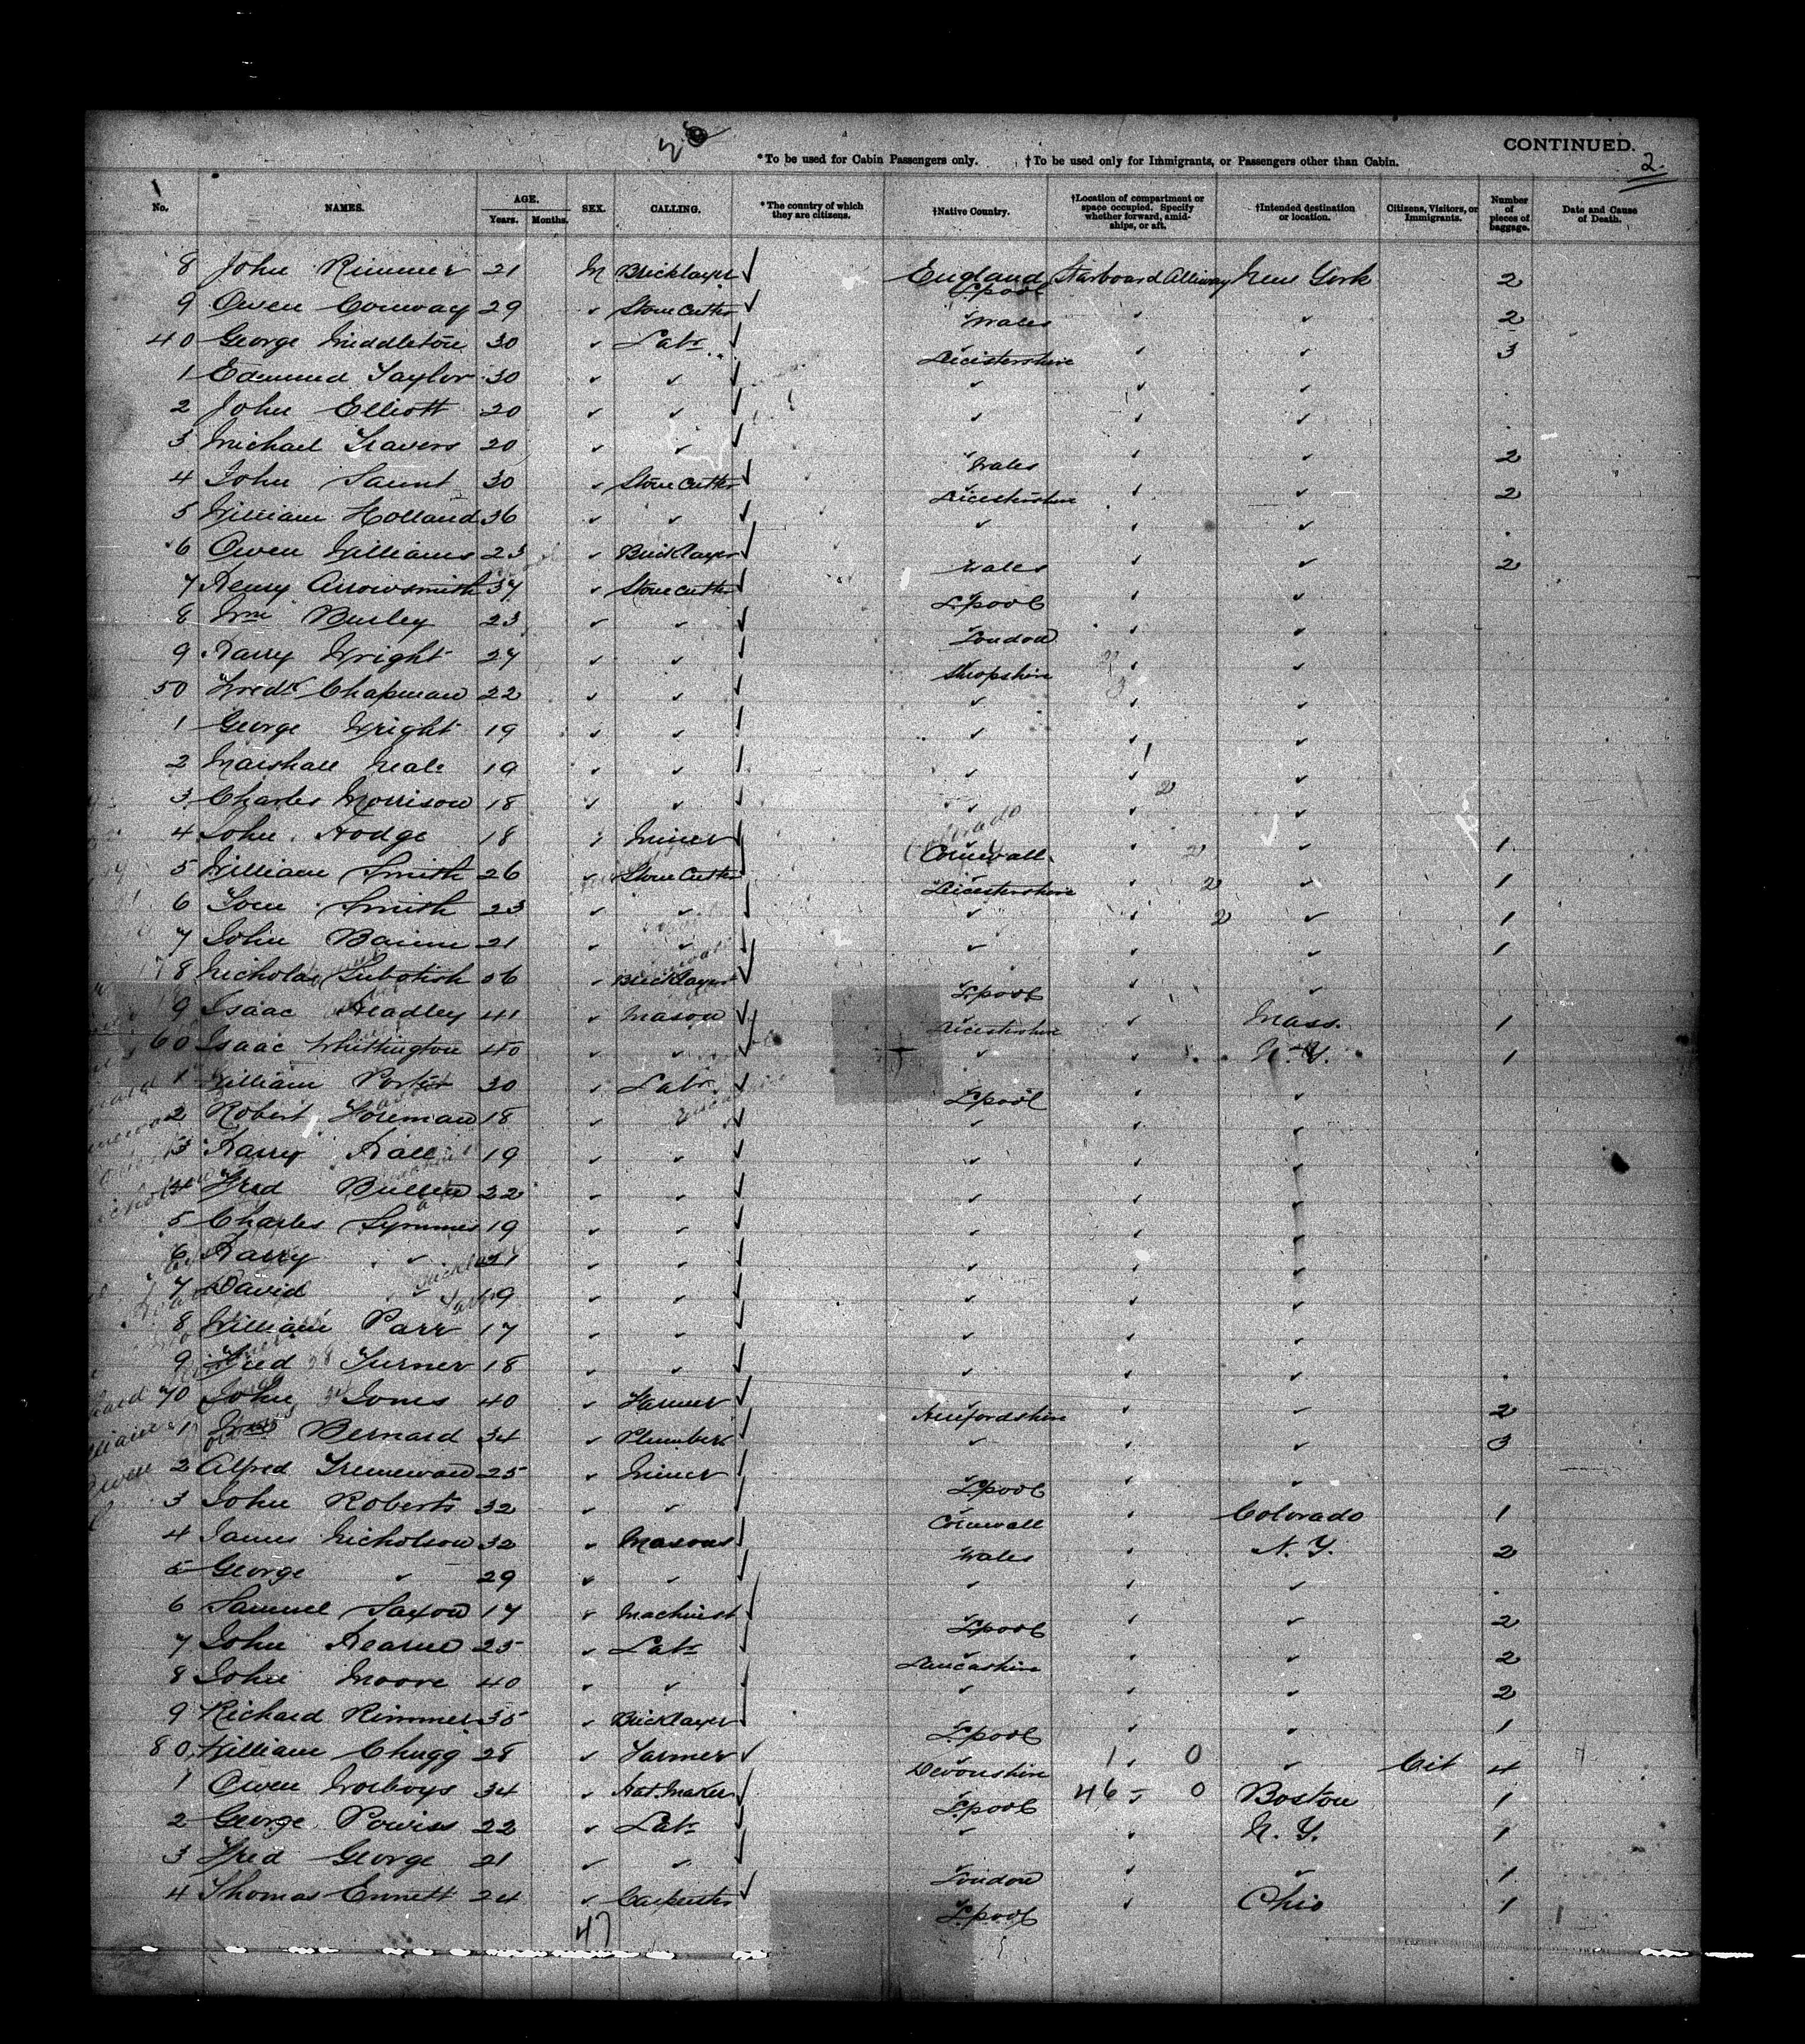 28
*To be used for Cabin Passengers only. †To be used only for Immigrants, or Passengers other than Cabin. CONTINUED.
2.
No. NAMES. AGE. Years. Months. SEX. CALLING. *The country of which they are citizens. †Native Country. †Location of compartment or space occupied. Specify whether forward, amidships, or aft. †Intended destination or location. Citizens, Visitors, or Immigrants. Number of pieces of baggage. Date and Cause of Death.
8 John Rimmer 21 M Bricklayer ✓ England L'pool Starboard Alleway New York 2
9 Owen Conway 29 ✓ Stone Cutter ✓ Wales ✓ ✓ 2
40 George Middleton 30 ✓ Labr ✓ Leicestershire ✓ ✓ 3
1 Edmund Taylor 30 ✓ ✓ ✓ ✓ ✓ ✓
2 John Elliott 20 ✓ ✓ ✓ ✓ ✓ ✓
3 Michael Travers 20 ✓ ✓ ✓ Wales ✓ ✓ 2
4 John Saunt 30 ✓ Stone Cutter ✓ Leicestershire ✓ ✓ 2
5 William Holland 36 ✓ ✓ ✓ ✓ ✓ ✓
6 Owen Williams 23 ✓ Bricklayer ✓ Wales ✓ ✓ 2
7 Henry Arrowsmith 37 ✓ Stone Cutter ✓ L'pool ✓ ✓
8 Wm Busley 23 ✓ ✓ ✓ London ✓ ✓
9 Harry Wright 27 ✓ ✓ ✓ Shropshire ✓ ✓
50 Fredk Chapman 22 ✓ ✓ ✓ ✓ ✓ ✓
1 George Wright 19 ✓ ✓ ✓ ✓ ✓ ✓
2 Marshall Neale 19 ✓ ✓ ✓ ✓ ✓ ✓
3 Charles Morrison 18 ✓ ✓ ✓ ✓ ✓ ✓
4 John Hodge 18 ✓ Miner ✓ Cornwall ✓ ✓ 1
5 William Smith 26 ✓ Stone Cutter ✓ Leicestershire ✓ ✓ 1
6 Tom Smith 23 ✓ ✓ ✓ ✓ ✓ ✓ 1
7 John 21 ✓ ✓ ✓ ✓ ✓ ✓ 1
8 Nicholas 36 ✓ Bricklayer ✓ L'pool ✓ ✓
9 Isaac Headley 41 ✓ Mason ✓ Leicestershire ✓ Mass. 1
60 Isaac Whittington 40 ✓ ✓ ✓ ✓ ✓ N.Y. 1
1 William Porter 30 ✓ Labr ✓ L'pool ✓ ✓
2 Robert Foreman 18 ✓ ✓ ✓ ✓ ✓ ✓
3 Harry Hall 19 ✓ ✓ ✓ ✓ ✓ ✓
4 Fred Bullen 22 ✓ ✓ ✓ ✓ ✓ ✓
5 Charles Symmes 19 ✓ ✓ ✓ ✓ ✓ ✓
6 Harry ✓ 21 ✓ ✓ ✓ ✓ ✓ ✓
7 David ✓ 19 ✓ ✓ ✓ ✓ ✓ ✓
8 William Parr 17 ✓ ✓ ✓ ✓ ✓ ✓
9 Fred Turner 18 ✓ ✓ ✓ ✓ ✓ ✓
70 John Jones 40 ✓ Farmer ✓ Herefordshire ✓ ✓ 2
1 Bernard 34 ✓ Plumber ✓ ✓ ✓ ✓ 3
2 Alfred Tremewan 25 ✓ Miner ✓ L'pool ✓ ✓
3 John Roberts 32 ✓ ✓ ✓ Cornwall ✓ Colorado 1
4 James Nicholson 32 ✓ Masons ✓ Wales ✓ N.Y. 2
5 George ✓ 29 ✓ ✓ ✓ ✓ ✓ ✓
6 Samuel Saxon 17 ✓ Machinist ✓ L'pool ✓ ✓ 2
7 John Hearne 25 ✓ Labr ✓ Lancashire ✓ ✓ 2
8 John Moore 40 ✓ ✓ ✓ ✓ ✓ ✓ 2
9 Richard Rimmer 35 ✓ Bricklayer ✓ L'pool ✓ ✓ 1
80 William Chugg 28 ✓ Farmer ✓ Devonshire 1 ✓ 0 ✓ Cit 4
1 Owen Worboys 34 ✓ Hat Maker ✓ L'pool 46 - 0 Boston 1
2 George Powiss 22 ✓ Labr ✓ ✓ ✓ N.Y. 1
3 Fred George 21 ✓ ✓ ✓ London ✓ ✓ 1
4 Thomas Emett 24 ✓ Carpenter ✓ L'pool ✓ Ohio 1
47